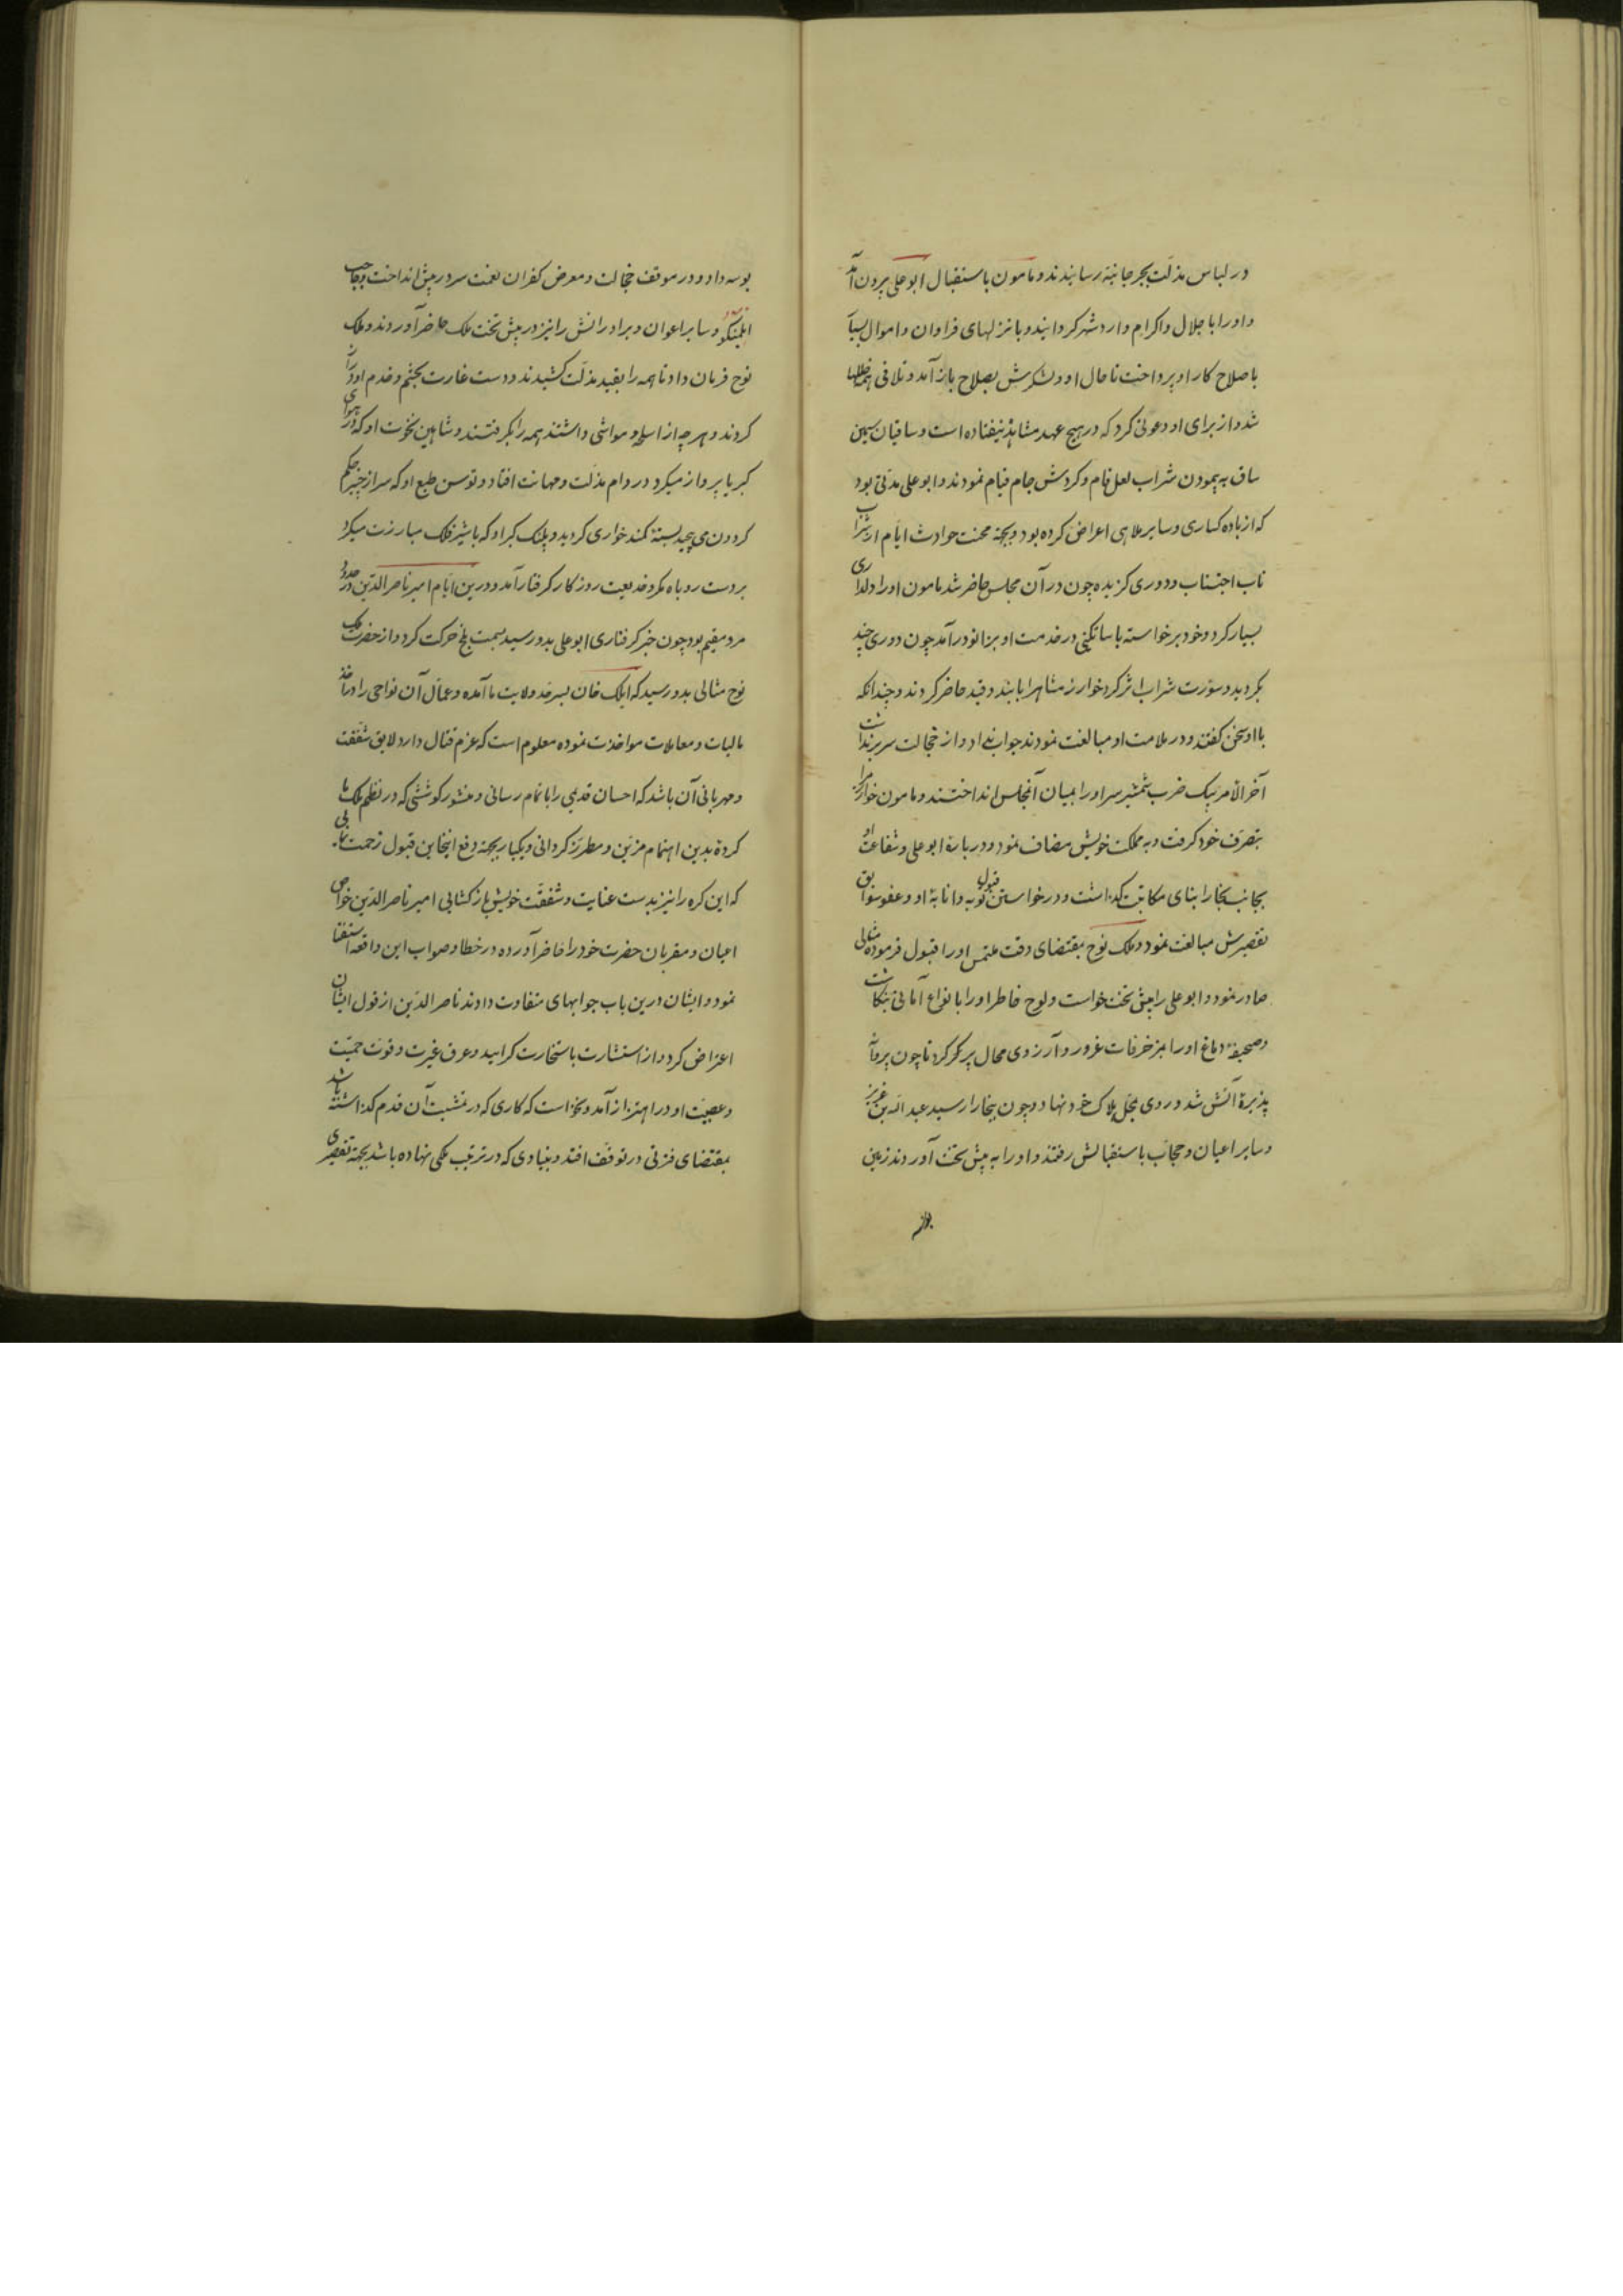 در لباس مذلت بجرجانیه رسانیدند و مامون باستقبال ابوعلی بیرون آمد
و او را با جلال و اکرام وارد شهر کردانید و بانزلهای فراوان و اموال بسیا
باصلاح کار او پرداخت تا حال او و لشکرش بصلاح باز آمد و تلافی همه خللها
شد و از برای او دعوتی کرد که در هیچ عهد مشابه آن نیفتاده است و ساقیان سیمین
ساق به پیمودن شراب لعل فام و کردش جام قیام نمودند و ابوعلی مدتی بود
که از باده کساری و سایر ملاهی اعراض کرده بود و بجهة محنت حوادث ایام از شراب
ناب اجتناب و دوری کزیده چون در آن مجلس حاضر شد مامون او را دلداری
بسیار کرد و خود برخواسته با ساتکینی در خدمت او بزانو درآمد چون دوری چند
بکردید و سورت شراب اثر کرد خوارزمشاه را با بند و قید حاضر کردند و چندانکه
با او سخن کفتند و در ملامت او مبالغت نمودند جواب نداد و از خجالت سر برنداشت
آخر الامر بیک ضرب شمشیر سر او را بمیان آنمجلس انداختند و مامون خوارزم را
بتصرف خود کرفت و به مملکت خویش مضاف نمود و درباره ابوعلی و شفاعت او
بجانب بخارا بنای مکاتبت کذاشت و در خواستن قبول توبه و انابة او و عفو سوابق
تقصیرش مبالغت نمود و ملک نوح بمقتضای وقت ملتمس او را قبول فرموده مثالی
صادر نمود و ابوعلی را پیش تخت خواست و لوح خاطر او را با انواع امانی بنکاشت
و صحیفه دماغ او را بمزخرفات غرور و آرزوی محال پر کرد تا چون پروانه
پذیرة آتش شد و روی بمحل هلاک خود نهاد و چون ببخارا رسید عبدالله بن عزیز
و سایر اعیان و حجاب باستقبالش رفتند و او را به پیش تخت آوردند زمین
بوسه داد و در موقف خجالت و معرض کفران نعمت سر در پیش انداخت و حاجب
ایلمنکو و سایر اعوان و برادرانش را نیز در پیش تخت ملک حاضر آوردند و ملک
نوح فرمان داد تا همه را بقید مذلت کشیدند و دست غارت بحشم و خدم او دراز
کردند و هرچه از اسلحه و مواشی داشتند همه را بکرفتند و شاهین نخوت او که در هوای
کبریا پرواز میکرد در دام مذلت و مهانت افتاد و توسن طبع او که سر از چنبر حکم
کردون می پیچید بستة کمند خواری کردید و پلنک کبر او که با شیر فلک مبارزت میکرد
بر دست روباه مکر و خدیعت روزکار کرفتار آمد و درین ایام امیر ناصر الدین در حدود
مرو مقیم بود چون خبر کرفتاری ابوعلی بدو رسید بسمت بلخ حرکت کرد و از حضرت ملک
نوح مثالی بدو رسید که ایلک خان بسرحد ولایت ما آمده و عمال آن نواحی را در اخذ
مالیات و معاملات مواخذت نموده معلوم است که عزم قتال دارد لایق شفقت
و مهربانی آن باشد که احسان قدیمی را باتمام رسانی و منشور کوششی که در نظم ملک ما
کردة بدین اهتمام مزین و مطرز کردانی و یکبار بجهة دفع ایخاین قبول زحمت نمایی
که این کره را نیز بدست عنایت و شفقت خویش بازکشایی امیر ناصر الدین خواص
اعیان و مقربان حضرت خود را حاضر آورده در خطا و صواب این واقعه استفتا
نمود و ایشان درین باب جوابهای متفاوت دادند ناصر الدین از قول ایشان
اعراض کرد و از استشارت باستخارت کرایید و عرق غیرت و قوت حمیت
و عصبیت او در اهتزاز آمد و نخواست که کاری که در تمشیت آن قدم کذاشته باشد
بمقتضای فرنی در توقف افتد و بنیادی که در ترتیب ملکی نهاده باشد بجهة تقصیری